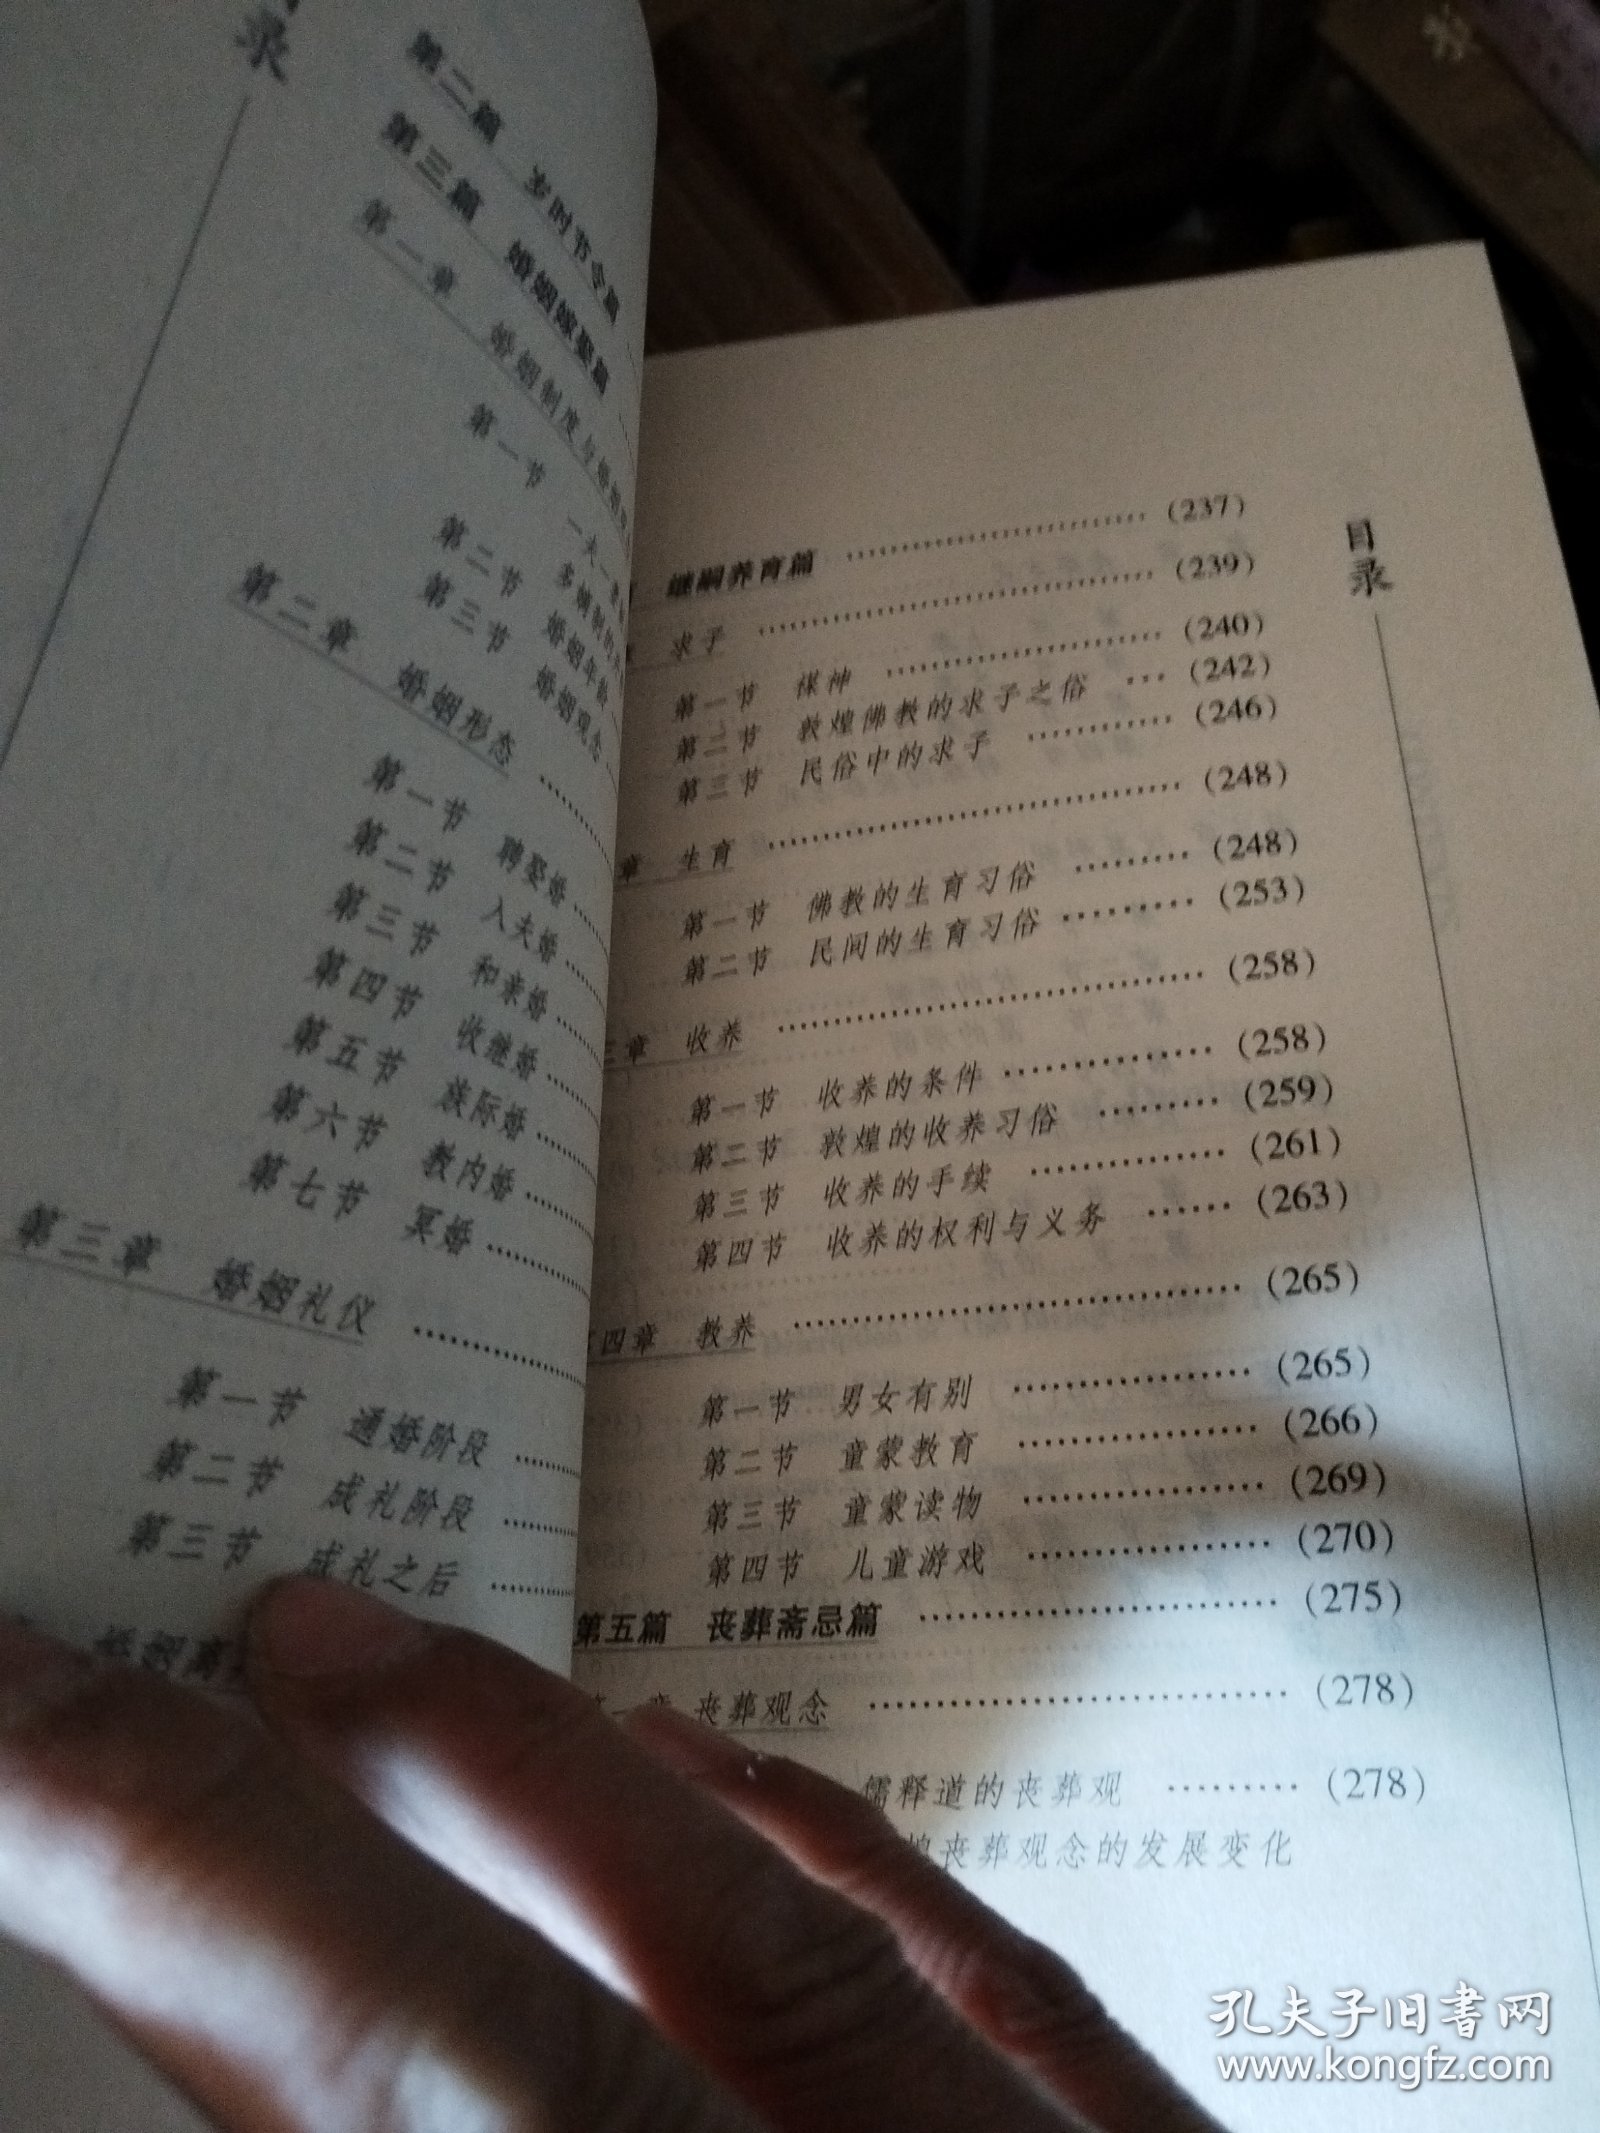 录
第二篇 岁时节令篇
第三篇 婚姻嫁娶篇
第一章 婚姻制度与婚姻
第一节 一夫一妻
第二节 婚姻年龄
第三节 婚姻观念
第二章 婚姻形态
第一节 聘娶婚
第二节 入夫婚
第三节 和亲婚
第四节 收继婚
第五节 族际婚
第六节 教内婚
第七节 冥婚
第三章 婚姻礼仪
第一节 通婚阶段
第二节 成礼阶段
第三节 成礼之后
婚姻离
目录
继嗣养育篇 (237)
求子 (239)
第一节 禖神 (240)
第二节 敦煌佛教的求子之俗 (242)
第三节 民俗中的求子 (246)
章 生育 (248)
第一节 佛教的生育习俗 (248)
第二节 民间的生育习俗 (253)
三章 收养 (258)
第一节 收养的条件 (258)
第二节 敦煌的收养习俗 (259)
第三节 收养的手续 (261)
第四节 收养的权利与义务 (263)
四章 教养 (265)
第一节 男女有别 (265)
第二节 童蒙教育 (266)
第三节 童蒙读物 (269)
第四节 儿童游戏 (270)
第五篇 丧葬斋忌篇 (275)
第一章 丧葬观念 (278)
儒释道的丧葬观 (278)
丧葬观念的发展变化
孔夫子旧书网
www.kongfz.com